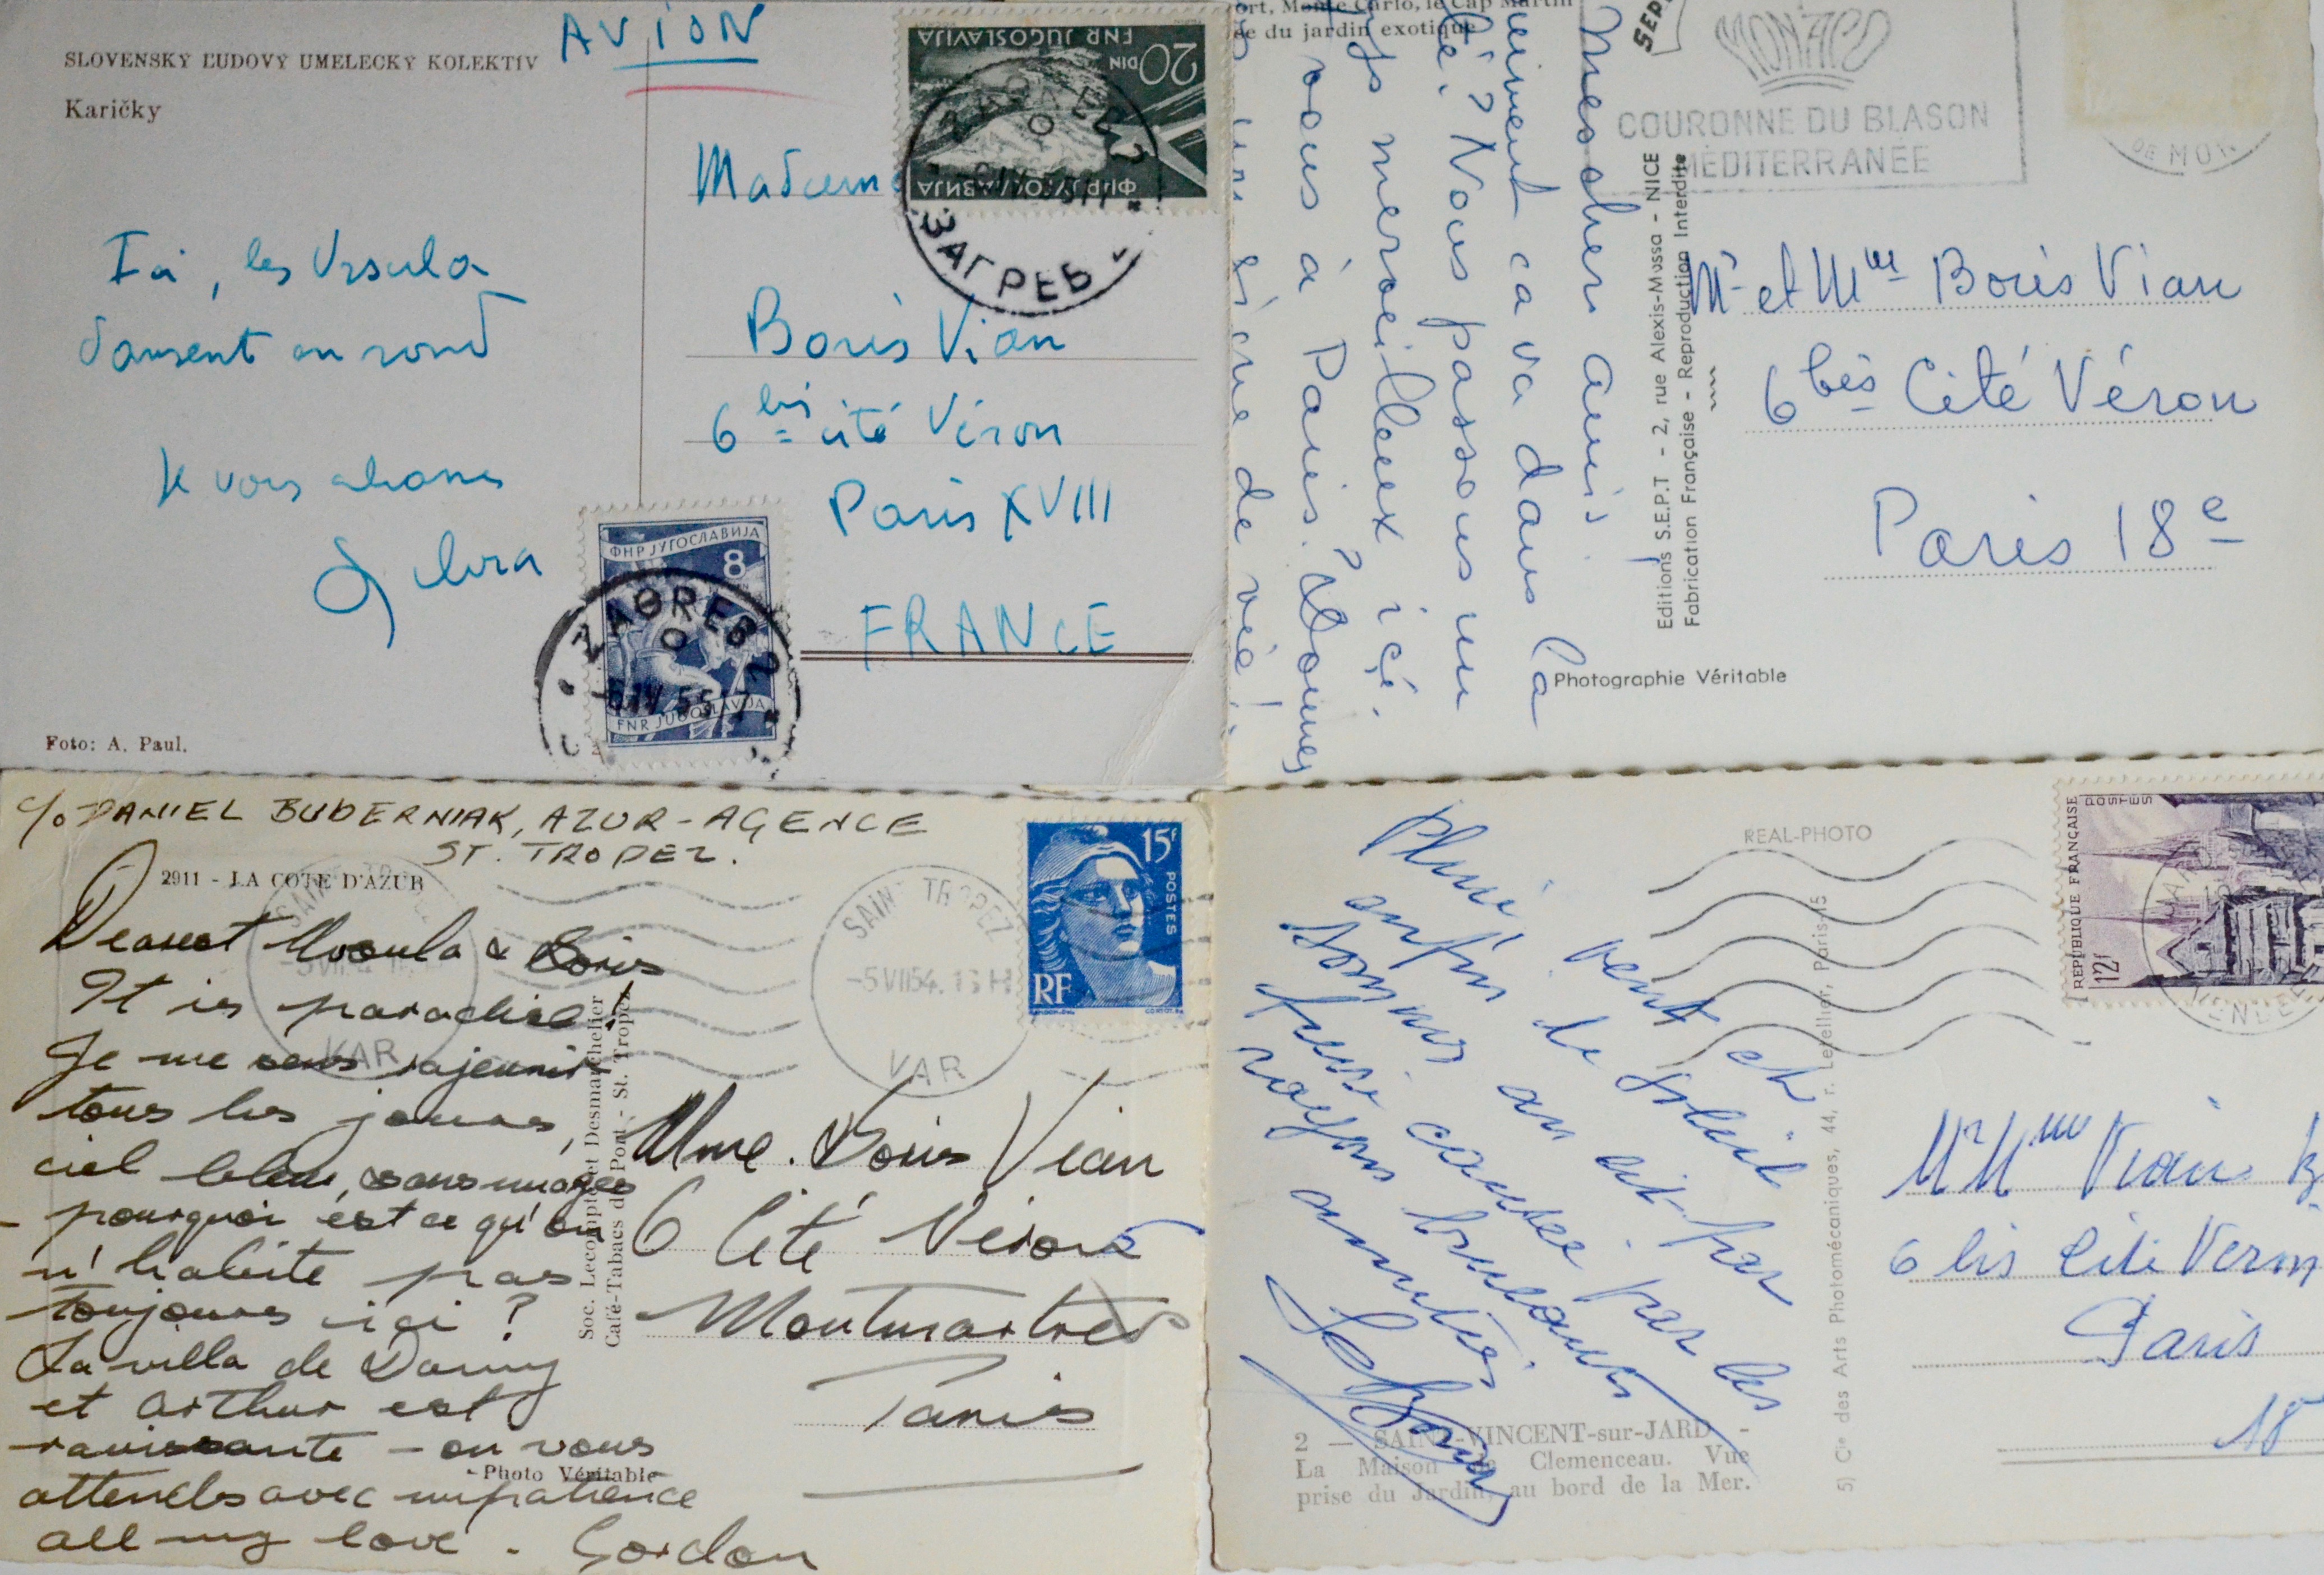 SLOVENSKÝ ĽUDOVÝ UMELECKÝ KOLEKTÍV
Karičky
AVION
Ici, les Ursula
dansent en rond
Je vous
Foto: A. Paul.
FNR JUGOSLAVIJA
20 DIN
ФНР ЈУГОСЛАВИЈА
ЗАГРЕБ
Madame
Boris Vian
6 bis cité Véron
Paris XVIII
FRANCE
ФНР ЈУГОСЛАВИЈА
8
ZAGREB 2
FNR JUGOSLAVIJA
ort, Monte Carlo, le Cap Martin
du jardin exotique
Mes chers amis
ça va dans la
? Nous passons un
merveilleux ici.
vous à Paris? Donnez
un signe de vie!
Editions S.E.P.T - 2, rue Alexis-Mossa - NICE
Fabrication Française - Reproduction Interdite
Photographie Véritable
SEPT
MONACO
COURONNE DU BLASON
MÉDITERRANÉE
DE MON
Mr et Mme Boris Vian
6 bis Cité Véron
Paris 18e
c/o DANIEL BUDERNIAK, AZUR-AGENCE
ST. TROPEZ.
2911 - LA COTE D'AZUR
Dearest Ursula & Boris
It is paradise
Je me sens rajeunir
tous les jours,
ciel bleu, sans nuages
- pourquoi est ce qu'on
n'habite pas
toujours ici ?
La villa de Danny
et Arthur est
ravissante - on vous
attends avec impatience
all my love. Gordon
Soc. Lecompte et Desmarchelier
Café-Tabacs du Port - St. Tropez
- Photo Véritable
SAINT TROPEZ
-5 VII 54
VAR
SAINT TROPEZ
-5 VII 54. 16 H
VAR
15f
POSTES
RF
Mme. Boris Vian
6 Cité Véron
Montmartre
Paris
REAL-PHOTO
Pluie, vent et
enfin le soleil
Sommes
rayons brulants
amitiés
2 — SAINT-VINCENT-sur-JARD -
La Maison de Clemenceau. Vue
prise du Jardin, au bord de la Mer.
5) Cie des Arts Photomécaniques, 44, r. Letellier, Paris-15
REPUBLIQUE FRANÇAISE
12f
POSTES
VENDEE
Mr Mme Vian B
6 bis Cité Veron
Paris
18